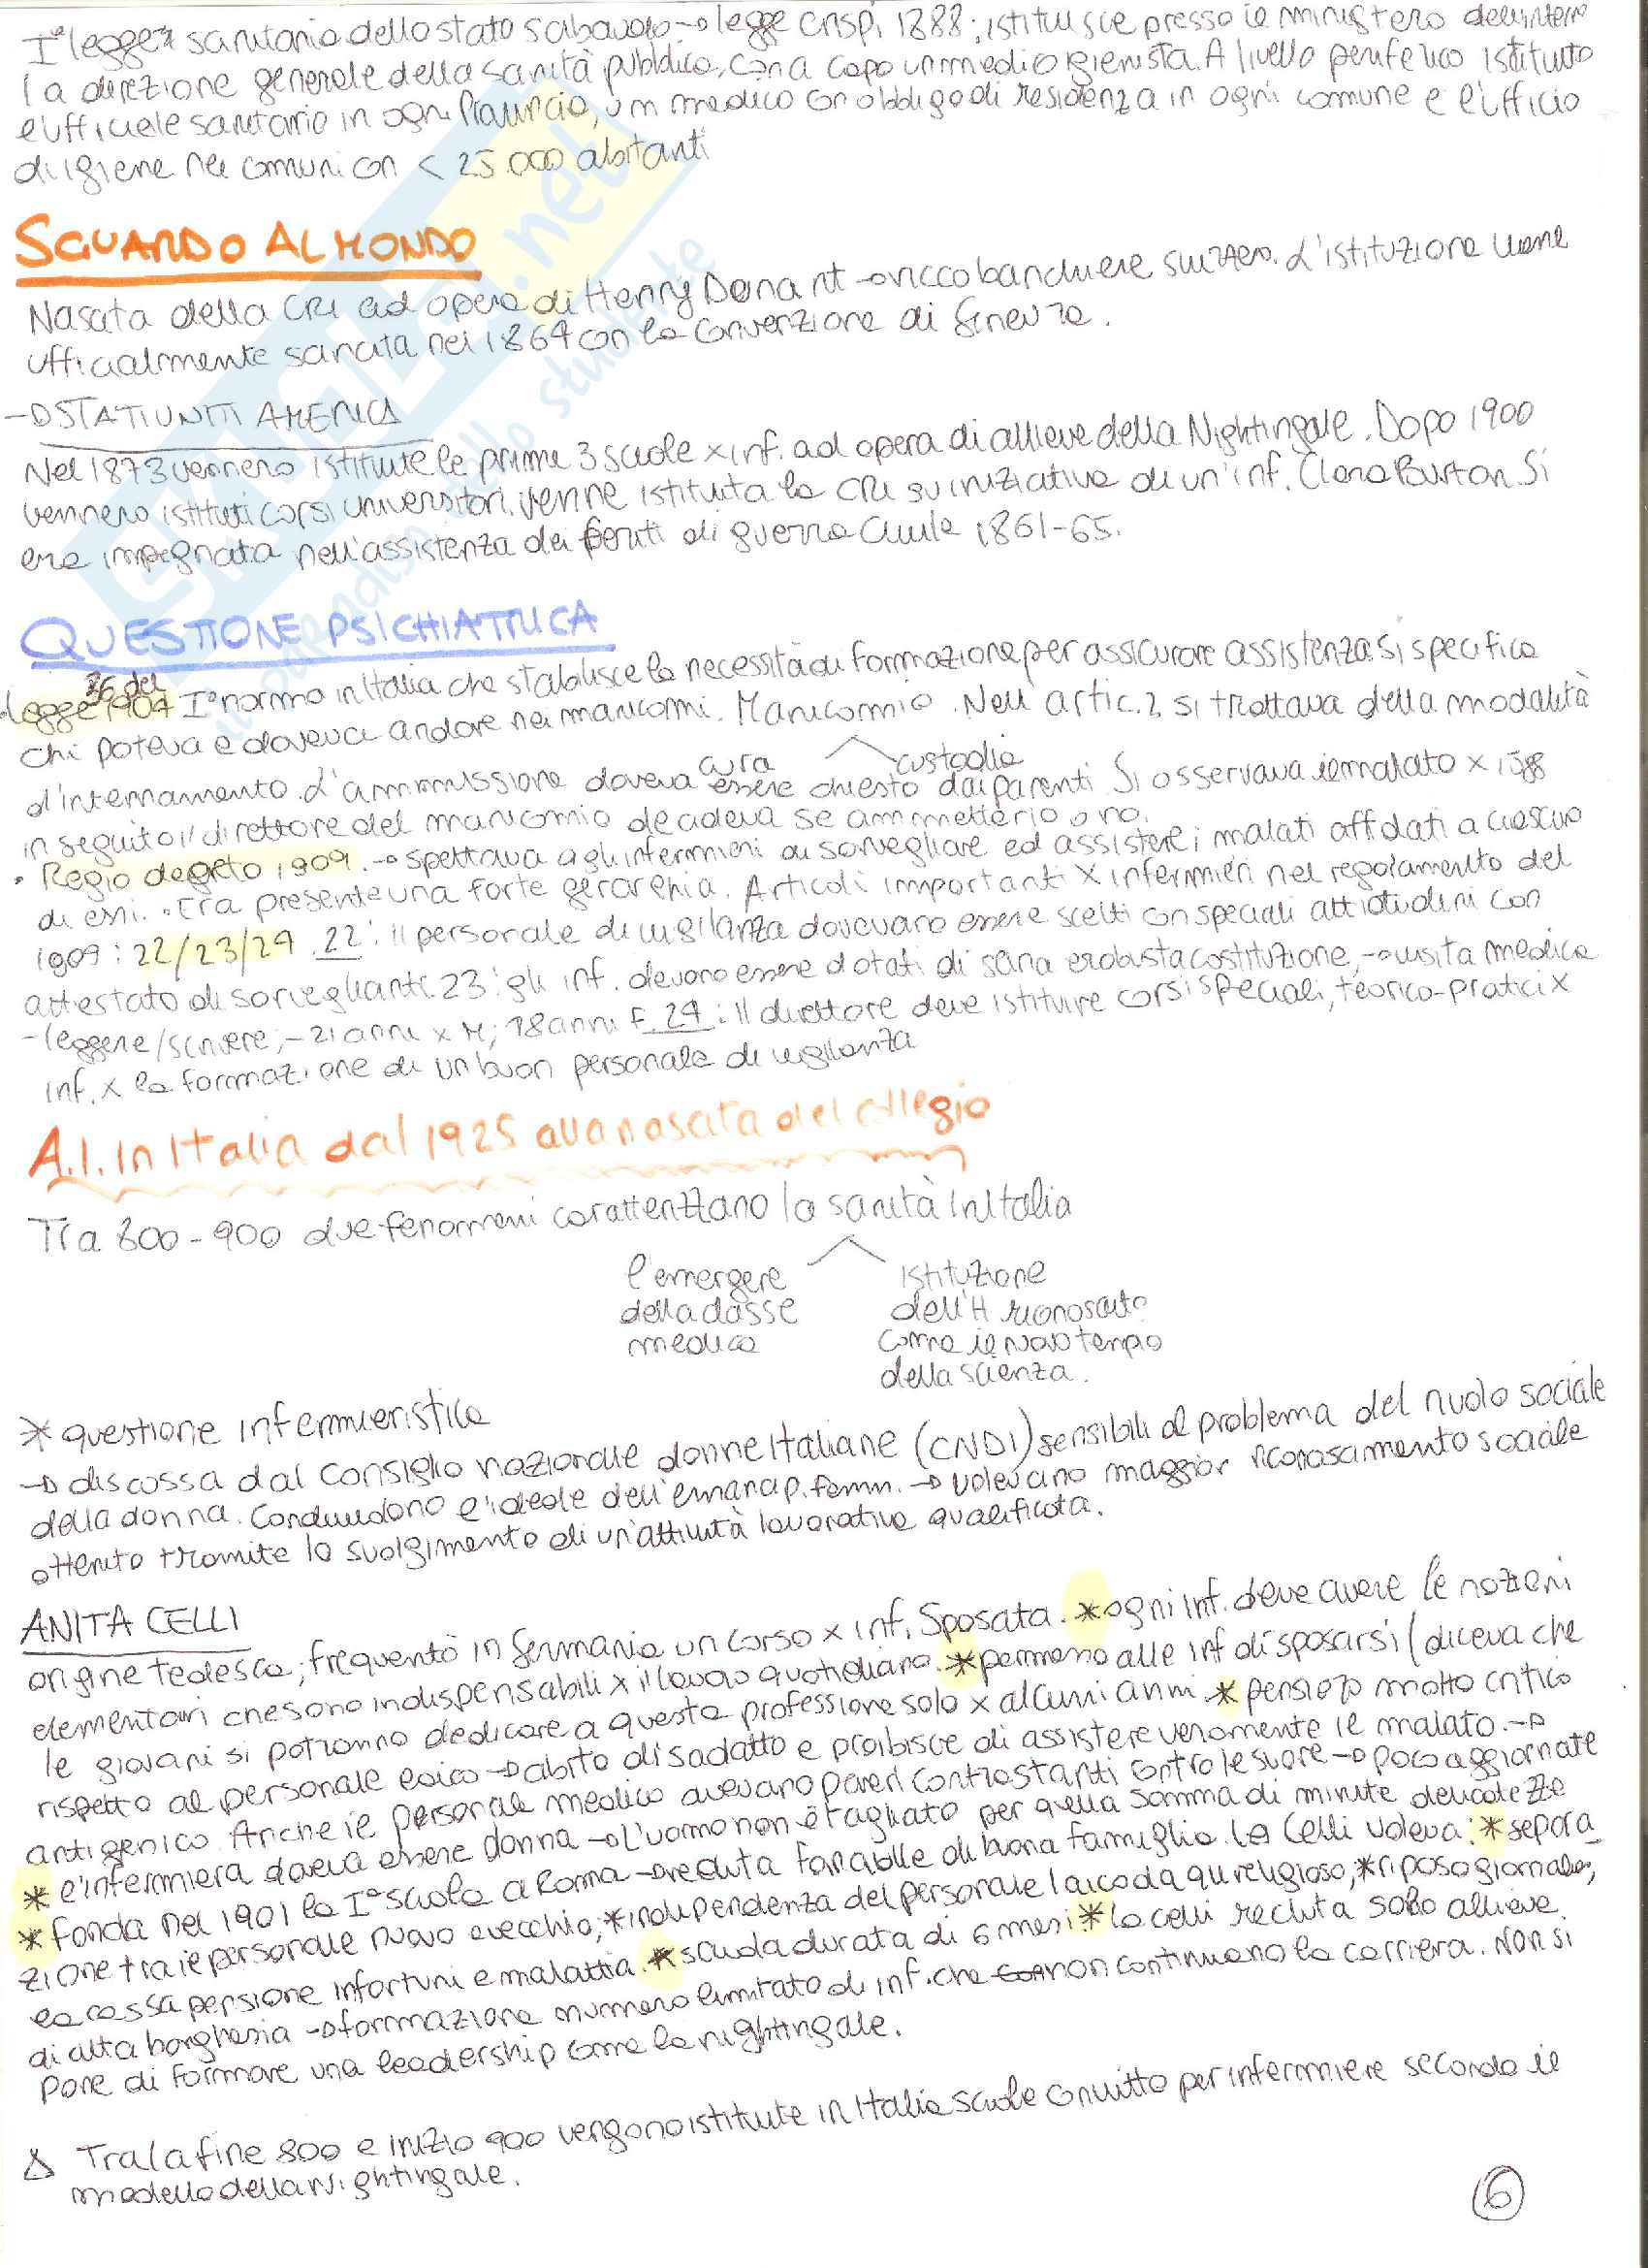 I° legge sanitaria dello stato sabaudo → legge Crispi 1888; istituisce presso il ministero dell'interno
la direzione generale della sanità pubblica, con a capo un medico igienista. A livello periferico istituito
l'ufficiale sanitario in ogni Provincia, un medico con obbligo di residenza in ogni comune e l'ufficio
di igiene nei comuni con < 25.000 abitanti
SGUARDO AL MONDO
Nasata della CRI ad opera di Henry Donant → ricco banchiere svizzero. L'istituzione viene
ufficialmente sancita nel 1864 con la Convenzione di Ginevra.
→ STATI UNITI AMERICA
Nel 1873 vennero istituite le prime 3 scuole x inf. ad opera di allieve della Nightingale. Dopo 1900
vennero istituiti corsi universitari. Venne istituita la CRI su iniziativa di un'inf. Clara Burton. Si
era impegnata nell'assistenza dei feriti di guerra civile 1861-65.
QUESTIONE PSICHIATRICA
• Legge 36 del 1904 I° norma in Italia che stabilisce la necessità di formazione per assicurare assistenza. Si specifica
chi poteva e doveva andare nei manicomi. Manicomio. Nell'artic. 2 si trattava della modalità
cura custodia
d'internamento. L'ammissione doveva essere chiesto dai parenti. Si osservava il malato x 15gg
in seguito il direttore del manicomio decideva se ammetterlo o no.
• Regio decreto 1909. → spettava agli infermieri di sorvegliare ed assistere i malati affidati a ciascuno
di essi. • Era presente una forte gerarchia. Articoli importanti x infermieri nel regolamento del
1909: 22/23/24. 22: Il personale di vigilanza dovevano essere scelti con speciali attitudini con
attestato di sorveglianti. 23: gli inf. devono essere dotati di sana e robusta costituzione, → visita medica
- leggere/scrivere, - 21 anni x M; 18 anni F. 24: Il direttore deve istituire corsi speciali, teorico-pratici x
inf. x la formazione di un buon personale di vigilanza
A.I. in Italia dal 1925 alla nascata del collegio
Tra 800 - 900 due fenomeni caratterizzano la sanità in Italia
l'emergere istituzione
della classe dell'H riconosciuto
medica come il nuovo tempio
della scienza.
* questione infermieristica
→ discussa dal Consiglio nazionale donne Italiane (CNDI) sensibili al problema del ruolo sociale
della donna. Condividono l'ideale dell'emancip. femm. → volevano maggior riconoscimento sociale
ottenuto tramite lo svolgimento di un'attività lavorativa qualificata.
ANITA CELLI
origine tedesca; frequentò in Germania un corso x inf. Sposata. * ogni inf. deve avere le nozioni
elementari che sono indispensabili x il lavoro quotidiano. * permesso alle inf di sposarsi (diceva che
le giovani si potranno dedicare a questa professione solo x alcuni anni. * pensiero molto critico
rispetto al personale laico → abito disadatto e proibisce di assistere veramente il malato. →
antigenico. Anche il personale medico avevano pareri contrastanti contro le suore → poco aggiornate
* l'infermiera doveva essere donna → L'uomo non è tagliato per quella somma di minute delicatezze
* fonda nel 1901 la I° scuola a Roma → reduta fanciulle di buona famiglia. La Celli voleva: * separa
zione tra il personale nuovo e vecchio; * indipendenza del personale laico da qu religioso; * riposo giornaliero;
la cassa pensione infortuni e malattia. * scuola durata di 6 mesi * la celli recluta solo allieve
di alta borghesia → formazione numero limitato di inf. che non continuano la carriera. Non si
pone di formare una leadership come la nightingale.
Δ Tra la fine 800 e inizio 900 vengono istituite in Italia scuole convitto per infermiere secondo il
modello della Nightingale.
6